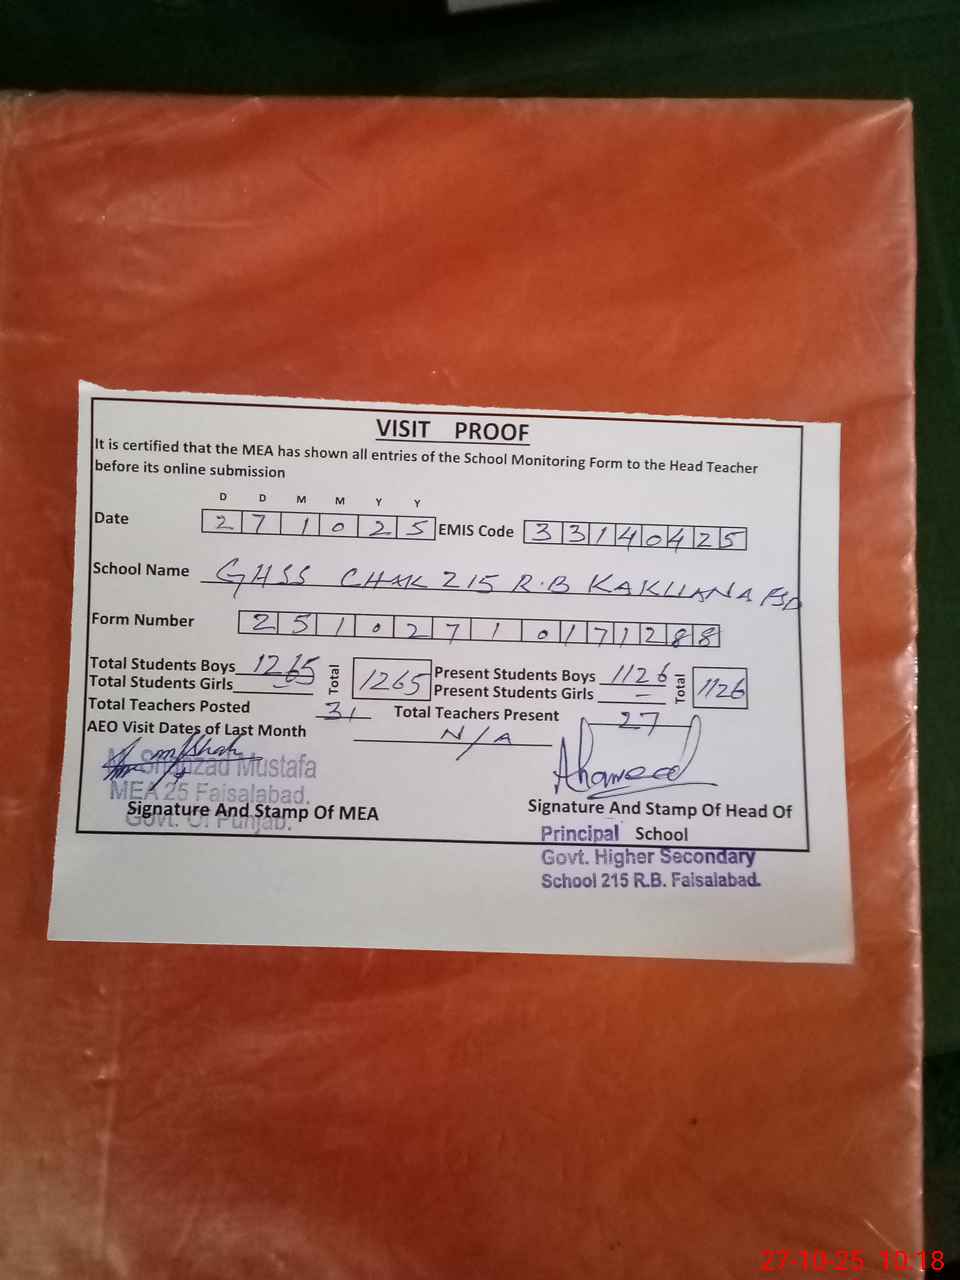 VISIT PROOF
It is certified that the MEA has shown all entries of the School Monitoring Form to the Head Teacher
before its online submission
D D M M Y Y
Date 2 7 1 0 2 5 EMIS Code 3 3 1 4 0 4 2 5
School Name GHSS CHAK 215 R.B KAKUANA FSD
Form Number 2 5 1 0 2 7 1 0 1 7 1 2 8 8
Total Students Boys 1265 Total 1265 Present Students Boys 1126 Total 1126
Total Students Girls – Present Students Girls –
Total Teachers Posted 31 Total Teachers Present 27
AEO Visit Dates of Last Month N/A
Shahzad Mustafa
MEA 25 Faisalabad.
Govt. Of Punjab.
Signature And Stamp Of MEA
Ahameed
Signature And Stamp Of Head Of
School
Principal
Govt. Higher Secondary
School 215 R.B. Faisalabad.
27-10-25 10:18